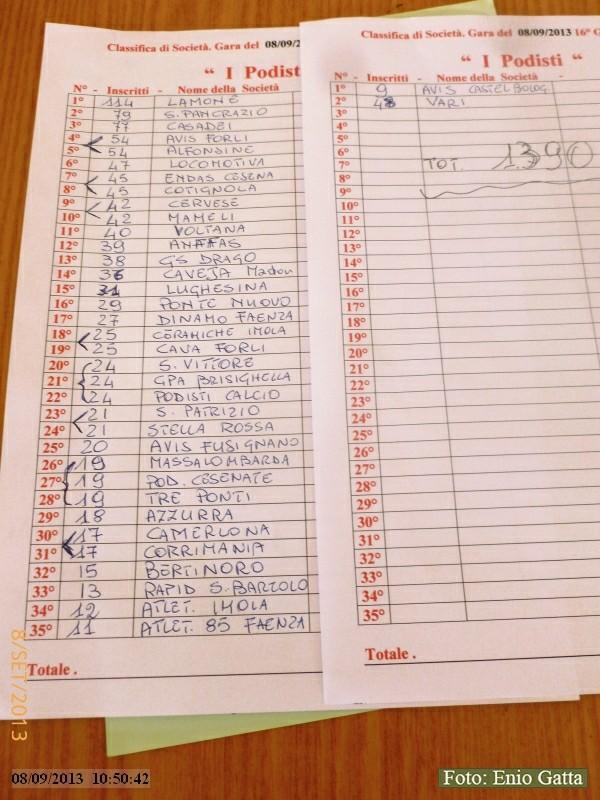 Classifica di Società. Gara del 08/09/2
“ I Podist
N° - Inscritti - Nome della Società
1° 114 LAMONE
2° 79 S. PANCRAZIO
3° 77 CASADEI
4° 54 AVIS FORLI
5° 54 ALFONSINE
6° 47 LOCOMOTIVA
7° 45 ENDAS CESENA
8° 45 COTIGNOLA
9° 42 CERVESE
10° 42 MAMELI
11° 40 VOLTANA
12° 39 ANFFAS
13° 38 GS DRAGO
14° 36 CAVEJA
15° 31 LUGHESINA
16° 29 PONTE NUOVO
17° 27 DINAMO FAENZA
18° 25 CERAMICHE IMOLA
19° 25 CAVA FORLI
20° 24 S. VITTORE
21° 24 GPA BRISIGHELLA
22° 24 PODISTI CALCIO
23° 21 S. PATRIZIO
24° 21 STELLA ROSSA
25° 20 AVIS FUSIGNANO
26° 19 MASSALOMBARDA
27° 19 POD. CESENATE
28° 19 TRE PONTI
29° 18 AZZURRA
30° 17 CAMERLONA
31° 17 CORRIMANIA
32° 15 BERTINORO
33° 13 RAPID S. BARTOLO
34° 12 ATLET. IMOLA
35° 11 ATLET. 85 FAENZA
Totale .
Classifica di Società. Gara del 08/09/2013 16° G
“ I Podisti “
N° - Inscritti - Nome della Società
1° 9 AVIS CASTELBOLOG
2° 48 VARI
3°
4°
5°
6°
7° TOT. 1390
8°
9°
10°
11°
12°
13°
14°
15°
16°
17°
18°
19°
20°
21°
22°
23°
24°
25°
26°
27°
28°
29°
30°
31°
32°
33°
34°
35°
Totale .
8/SET/2013
08/09/2013 10:50:42
Foto: Enio Gatta